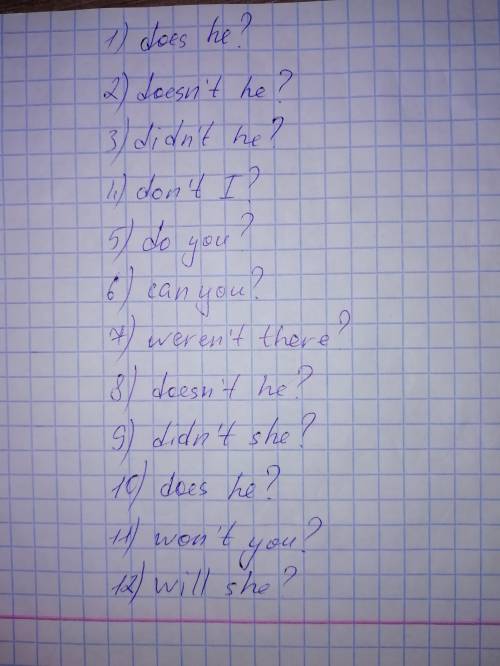 1) does he?
2) doesn't he?
3) didn't he?
4) don't I?
5) do you?
6) can you?
7) weren't there?
8) doesn't he?
9) didn't she?
10) does he?
11) won't you?
12) will she?